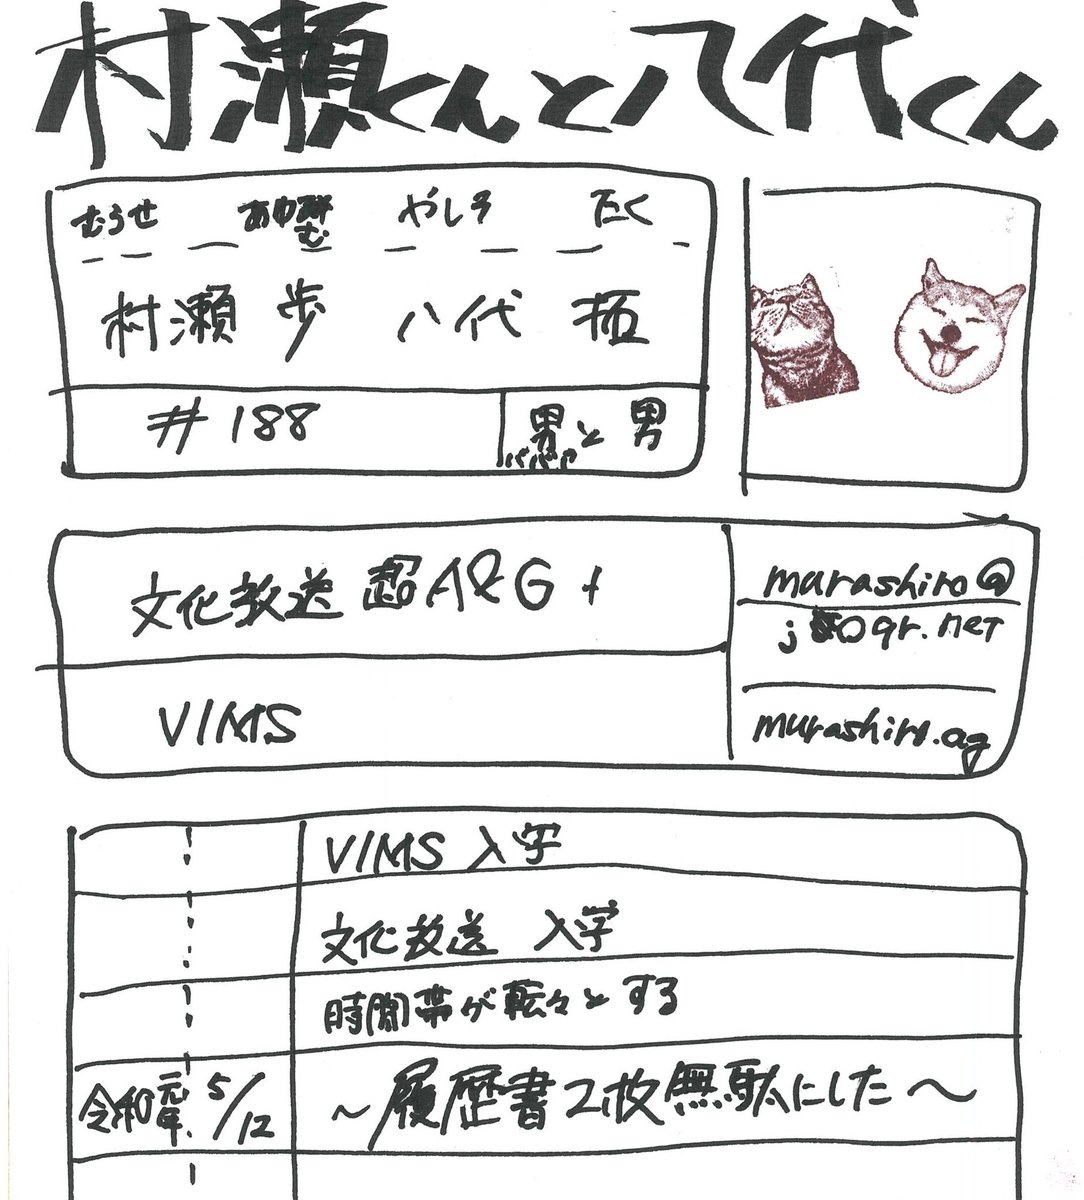 村瀬くんと八代くん
むらせ あゆむ やしろ たく
村瀬 歩 八代 拓
#188 男と男
文化放送 超A&G+
VIMS
murashiro@
joqr.net
murashiro.ag
VIMS 入学
文化放送 入学
時間帯が転々とする
令和元年 5/12 〜履歴書2枚無駄にした〜